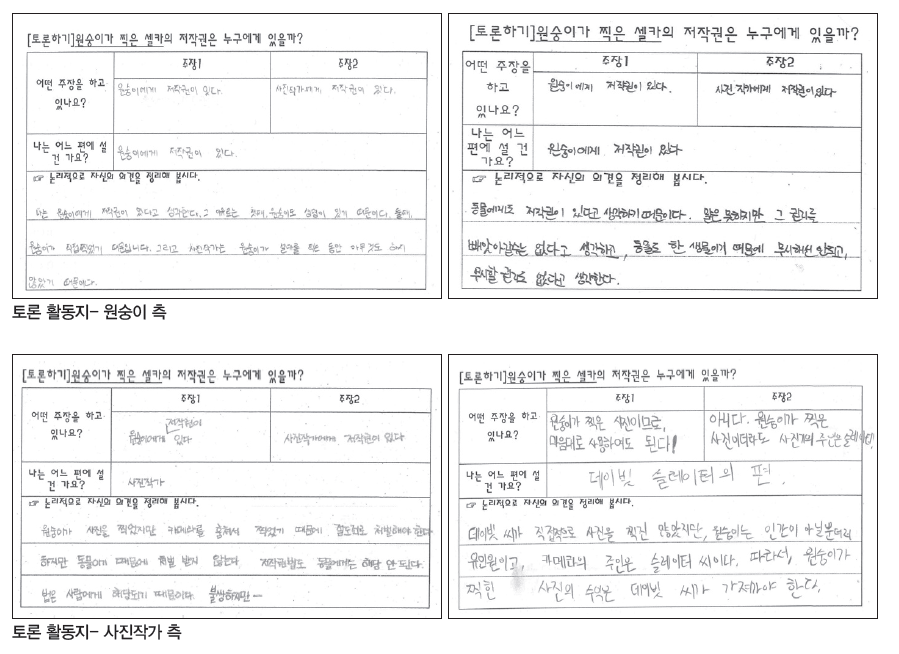 [토론하기]원숭이가 찍은 셀카의 저작권은 누구에게 있을까?
주장1
주장2
어떤 주장을 하고 있나요?
원숭이에게 저작권이 있다.
사진작가에게 저작권이 있다.
나는 어느 편에 설 건 가요?
원숭이에게 저작권이 있다.
☞ 논리적으로 자신의 의견을 정리해 봅시다.
나는 원숭이에게 저작권이 있다고 생각한다. 그 이유로는 첫째, 원숭이도 생명이 있기 때문이다. 둘째,
원숭이가 직접찍었기 때문입니다. 그리고 사진작가는 원숭이가 찍는 동안 아무것도 하지
않았기 때문이다.
[토론하기]원숭이가 찍은 셀카의 저작권은 누구에게 있을까?
주장1
주장2
어떤 주장을
하고
있나요?
원숭이에게 저작권이 있다.
사진 작가에게 저작권이 있다
나는 어느
편에 설 건
가요?
원숭이에게 저작권이 있다
☞ 논리적으로 자신의 의견을 정리해 봅시다.
동물에게도 저작권이 있다고 생각하기 때문이다. 말은 못하지만 그 권리를
빼앗아갈수는 없다고 생각하고, 동물도 한 생물이기 때문에 무시해선 안되고,
무시할 권리도 없다고 생각한다.
토론 활동지- 원숭이 측
[토론하기]원숭이가 찍은 셀카의 저작권은 누구에게 있을까?
주장1
주장2
어떤 주장을 하고
있나요?
저작권이
원숭이에게 있다
사진작가에게 저작권이 있다
나는 어느 편에 설
건 가요?
사진작가
☞ 논리적으로 자신의 의견을 정리해 봅시다.
원숭이가 사진을 찍었지만 카메라를 훔쳐서 찍었기 때문에 절도죄로 처벌해야 한다
하지만 동물이기 때문에 처벌 받지 않는다. 저작권법도 동물에게는 해당 안 된다.
법은 사람에게 해당되기 때문이다. 불쌍하지만ㅡ
[토론하기]원숭이가 찍은 셀카의 저작권은 누구에게 있을까?
주장1
주장2
어떤 주장을 하고
있나요?
원숭이가 찍은 사진이므로,
마음대로 사용하여도 된다!
아니다. 원숭이가 찍은
사진이더라도 사진기의 주인은 슬레이터!
나는 어느 편에 설
건 가요?
데이빗 슬레이터의 편.
☞ 논리적으로 자신의 의견을 정리해 봅시다.
데이빗 씨가 직접적으로 사진을 찍진 않았지만, 원숭이는 인간이 아닐뿐더러
유인원이고, 카메라의 주인은 슬레이터 씨이다. 따라서, 원숭이가
찍힌 사진의 수익은 데이빗 씨가 가져가야 한다.
토론 활동지- 사진작가 측